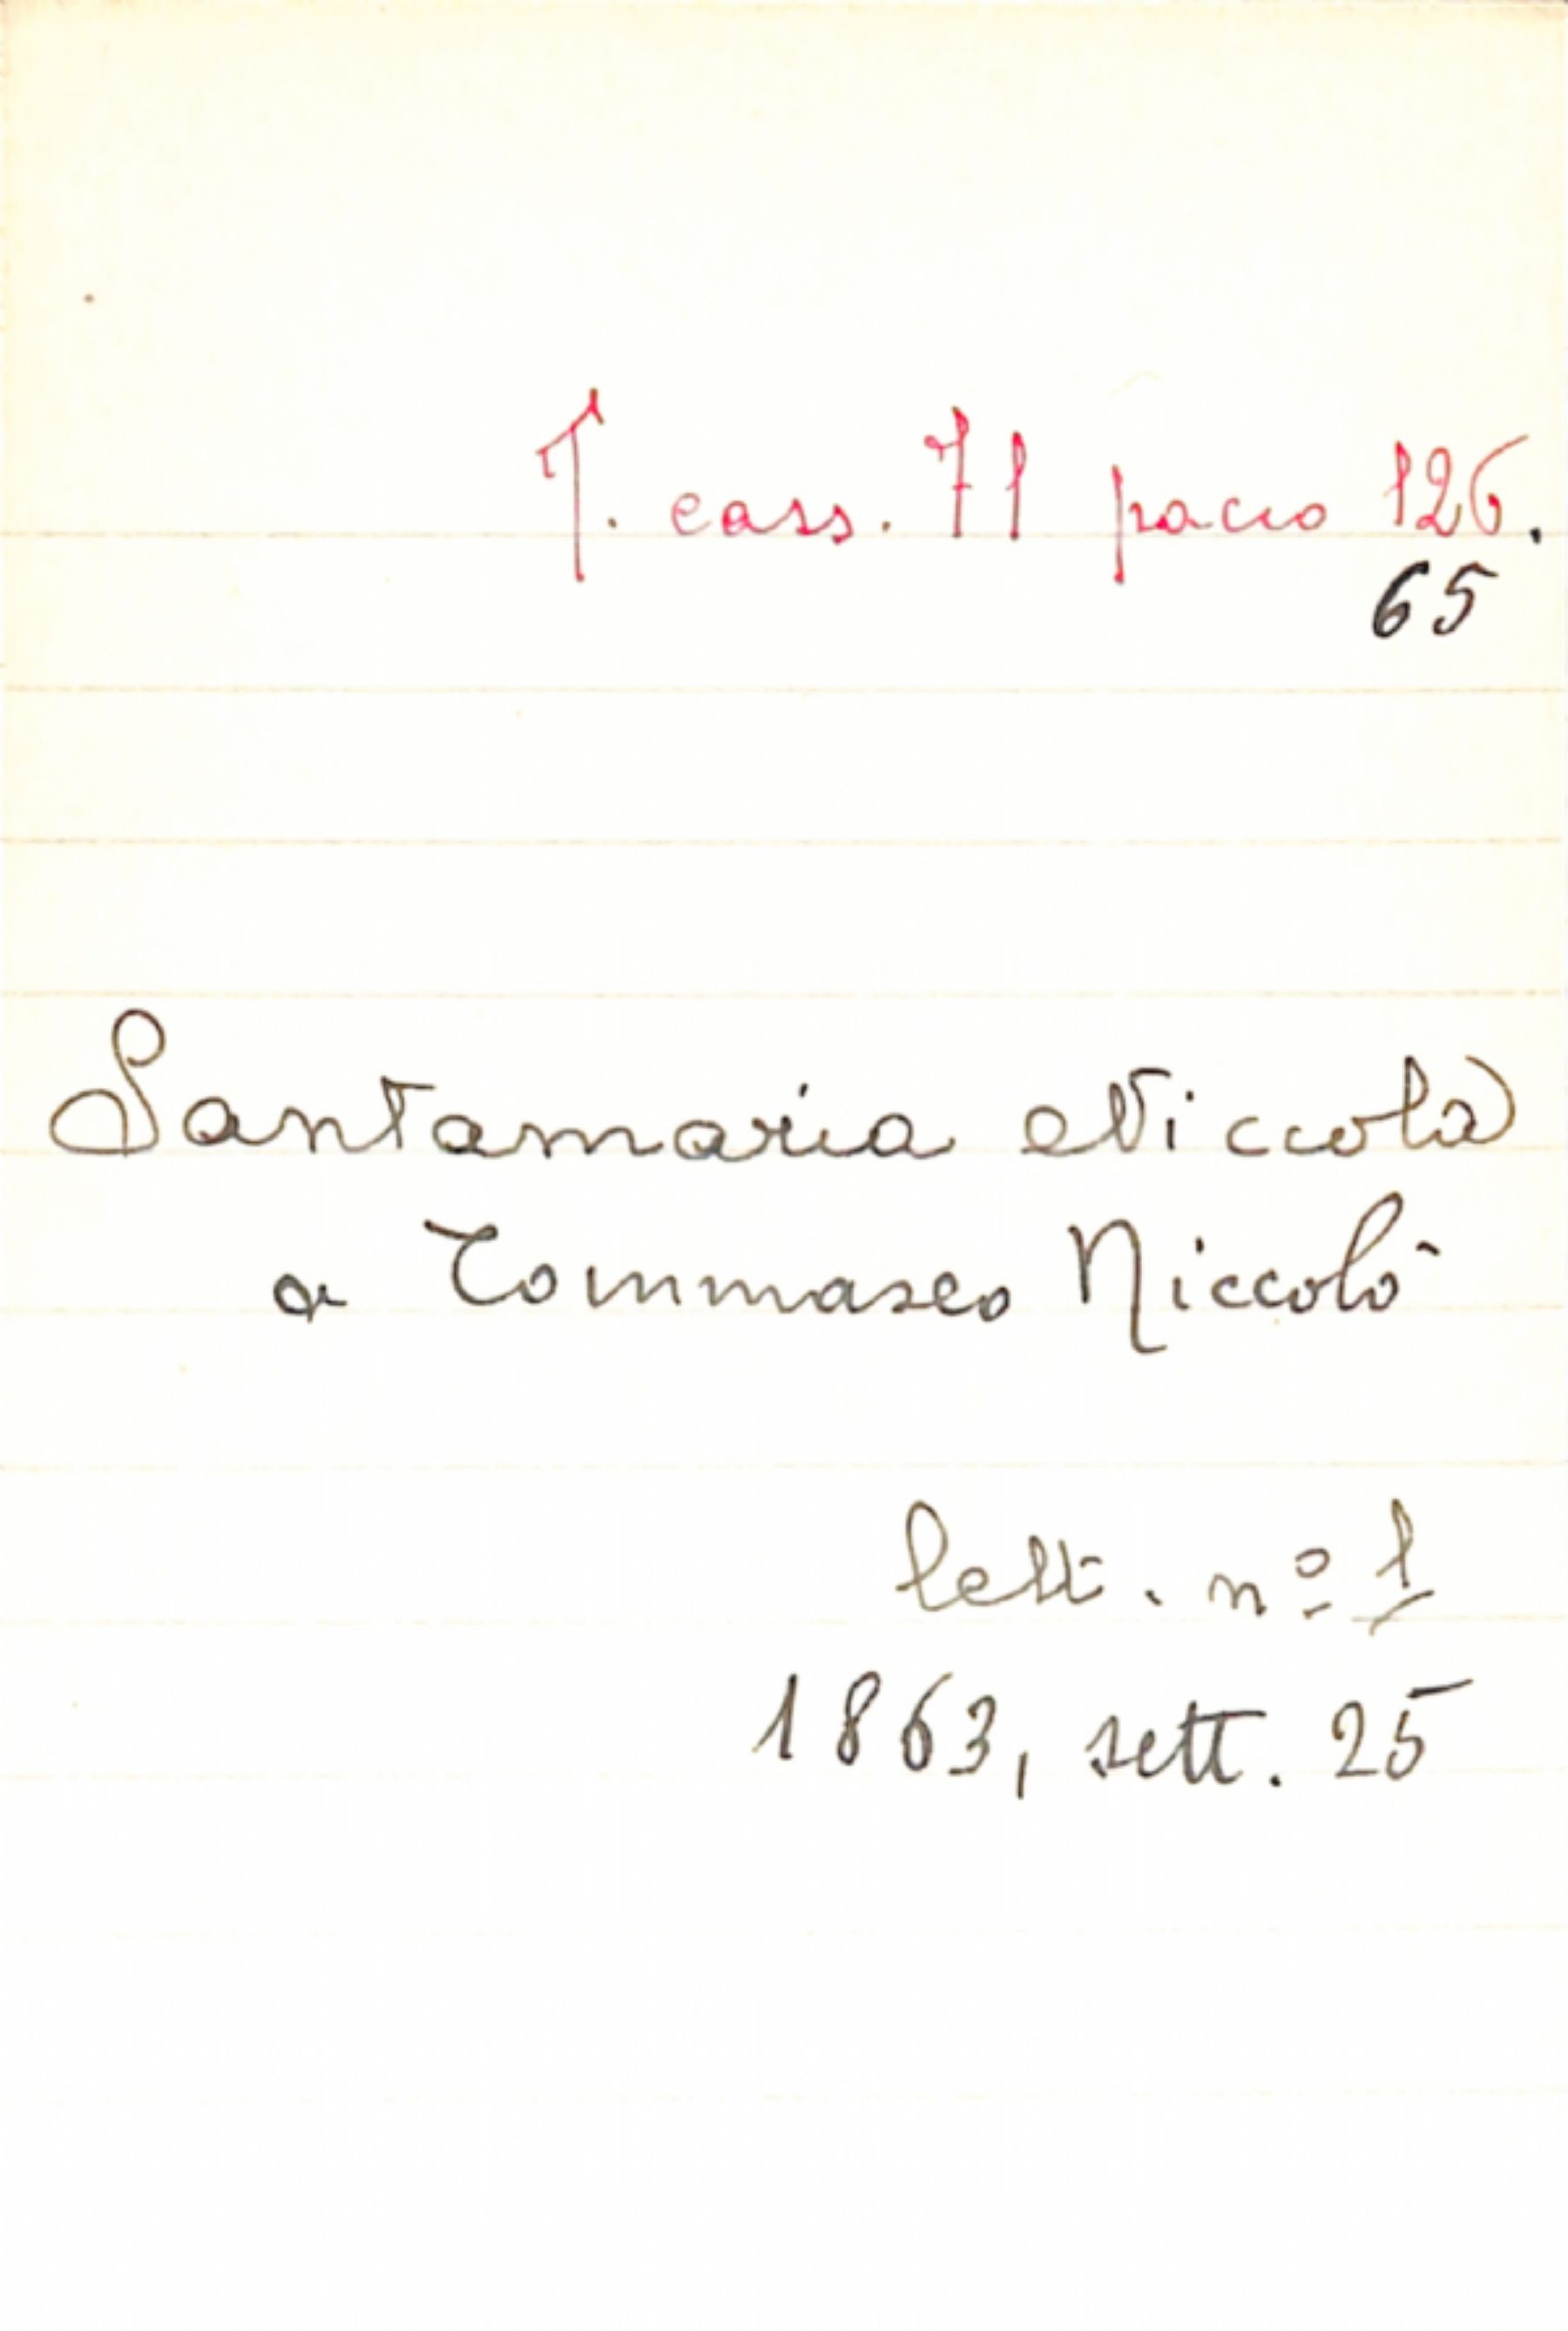 T. cass. 71 pacco 126.
65
Santamaria Niccola
a Tommaseo Niccolò
lett. nº 1
1863, sett. 25